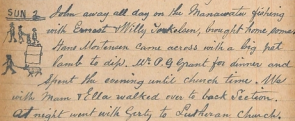 SUN 2 John away all day on the Manawatu fishing
with Ernest & Willy Torkelsen, brought home some.
Hans Mortensen came across with a big pet
lamb to dip. Mr P. G. Grant for dinner and
spent the evening until church time. We
with Mum & Ella walked over to back Section.
At night went with Gerty to Lutheran Church.